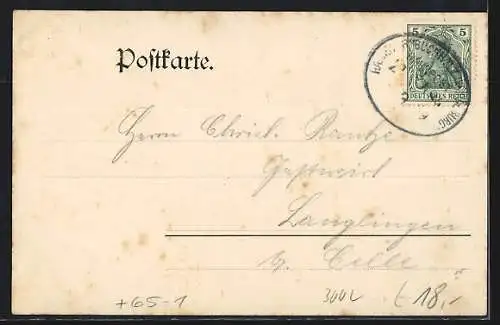 5 5
DEUTSCHES REICH
Postkarte.
Herrn Christ. Rautze
Gastwirt
Langlingen
b. Celle
+65-1
300L
18,-